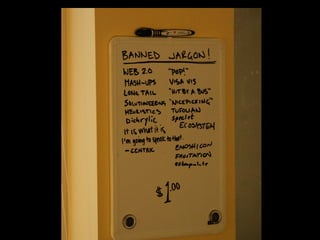 BANNED JARGON!
WEB 2.0
MASH-UPS
LONG TAIL
SOLUTIONEERING
HEURISTICS
It is what it is
I'm going to speak to that.
-CENTRIC
"POP!"
VISA VIS
"HIT BY A BUS"
"NICEPICKING"
TUFOLIAN
ECOSYSTEM
EMOSHICON
$1.00